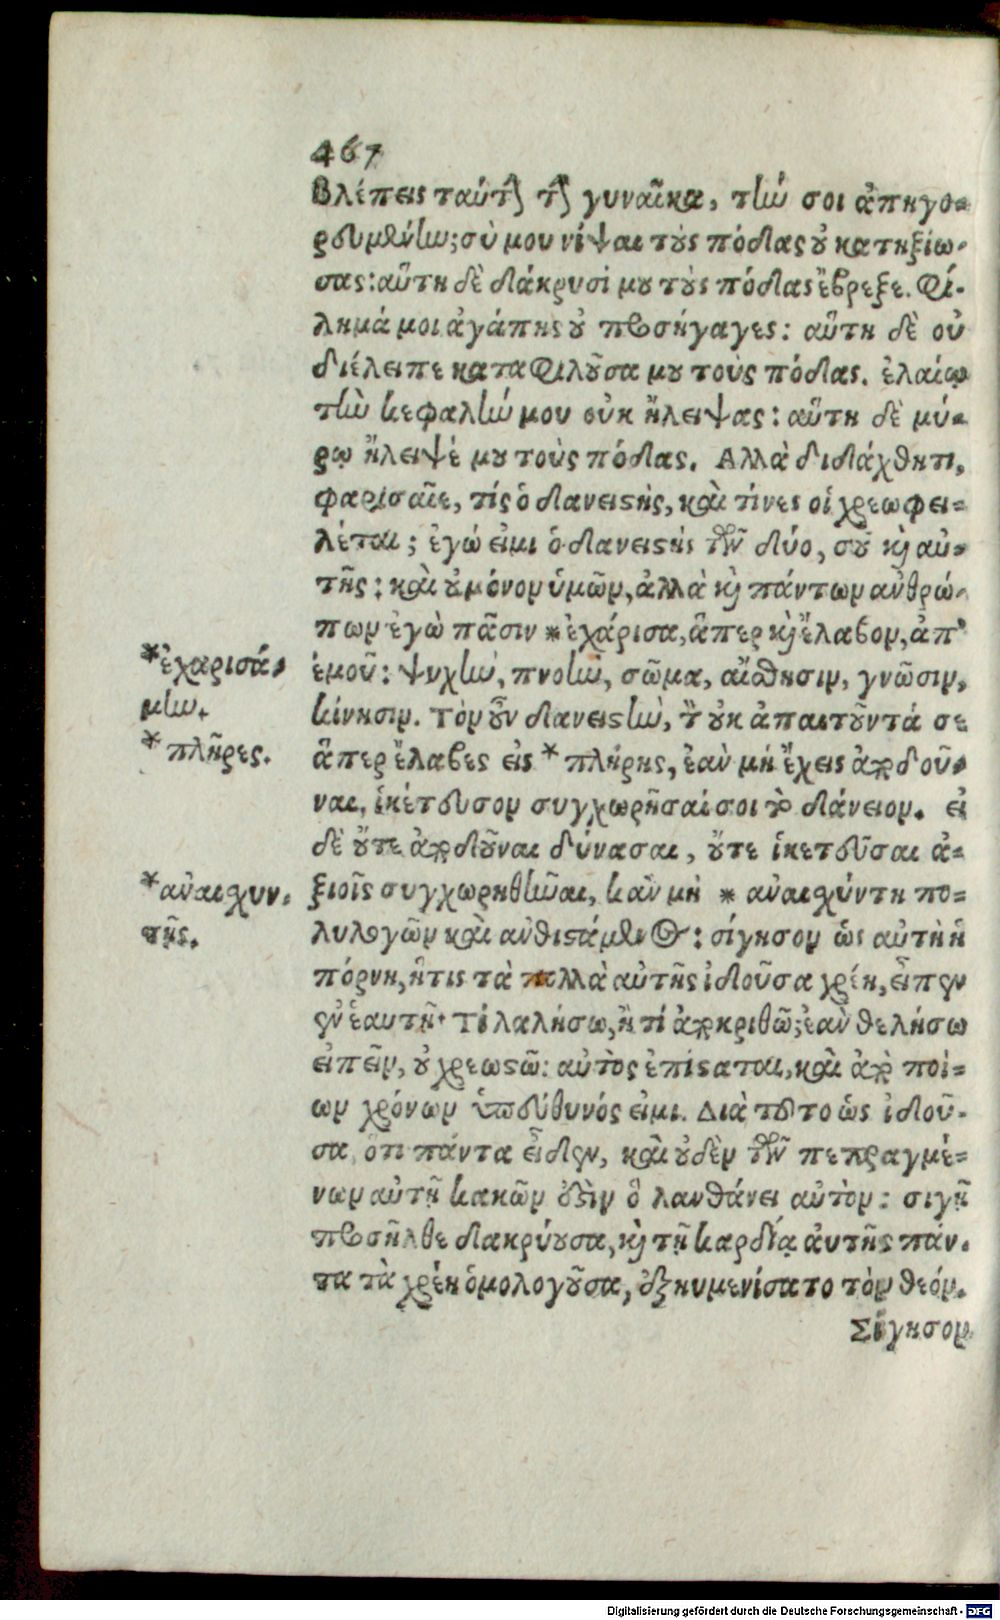 467
Βλέπεις ταύτην τὴν γυναῖκα, τὴν σοι ἀπηγο-
ρευμένην; σὺ μου νίψαι τοὺς πόδας οὐ κατηξίω-
σας: αὕτη δὲ δάκρυσί μου τοὺς πόδας ἔβρεξε. Φί-
λημά μοι ἀγάπης οὐ προσήγαγες: αὕτη δὲ οὐ
διέλειπε καταφιλοῦσα μου τοὺς πόδας. ἐλαίῳ
τὴν κεφαλήν μου οὐκ ἤλειψας: αὕτη δὲ μύ-
ρῳ ἤλειψέ μου τοὺς πόδας. Αλλὰ διδάχθητι,
φαρισαῖε, τίς ὁ δανειστής, καὶ τίνες οἱ χρεωφει-
λέται; ἐγώ εἰμι ὁ δανειστὴς τῶν δύο, σοῦ καὶ αὐ-
τῆς: καὶ οὐ μόνον ὑμῶν, ἀλλὰ καὶ πάντων ἀνθρώ-
πων ἐγὼ πᾶσιν * ἐχάρισα, ἅπερ καὶ ἔλαβον, ἀπ'
*ἐχαρισά-
μην.
ἐμοῦ: ψυχὴν, πνοὴν, σῶμα, αἴσθησιν, γνῶσιν,
κίνησιν. τὸν οὖν δανειστὴν, τὸν οὐκ ἀπαιτοῦντά σε
* πλῆρες.
ἅπερ ἔλαβες εἰς * πλήρης, ἐὰν μὴ ἔχεις ἀποδοῦ-
ναι, ἱκέτευσον συγχωρῆσαί σοι τὸ δάνειον. εἰ
δὲ οὔτε ἀποδοῦναι δύνασαι, οὔτε ἱκετεῦσαι ἀ-
*ἀναισχυν-
τῇς.
ξιοῖς συγχωρηθῆναι, κἂν μὴ * ἀναισχύντη πο-
λυλογῶν καὶ ἀνθιστάμενος: σίγησον ὡς αὐτὴ ἡ
πόρνη, ἥτις τὰ πολλὰ αὐτῆς ἰδοῦσα χρέη, εἶπεν
ἐν ἑαυτῇ· Τί λαλήσω, ἢ τί ἀποκριθῶ; ἐὰν θελήσω
εἰπεῖν, οὐ χρεωστῶ: αὐτὸς ἐπίσταται, καὶ ἀπὸ ποί-
ων χρόνων ὑπεύθυνός εἰμι. Διὰ τοῦτο ὡς ἰδοῦ-
σα, ὅτι πάντα εἶδεν, καὶ οὐδὲν τῶν πεπραγμέ-
νων αὐτῇ κακῶν ἐστὶν ὃ λανθάνει αὐτὸν: σιγῇ
προσῆλθε δακρύουσα, καὶ τῇ καρδίᾳ ἀυτῆς πάν-
τα τὰ χρέη ὁμολογοῦσα, ἐξηυμενίσατο τὸν θεόν.
Σίγησον
Digitalisierung gefördert durch die Deutsche Forschungsgemeinschaft - DFG